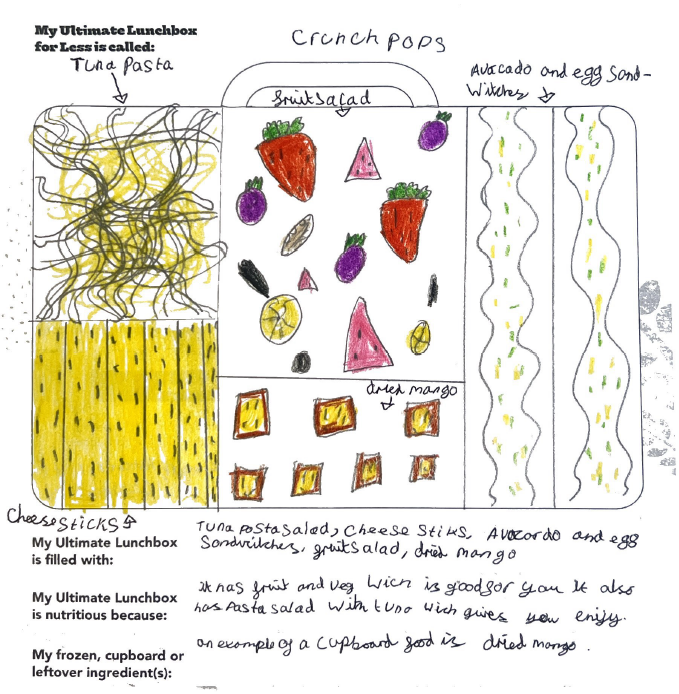 My Ultimate Lunchbox
for Less is called:
Crunch pops
Tuna Pasta
fruit salad
Avacado and egg Sand-
witches
dried mango
Cheese sticks
My Ultimate Lunchbox
is filled with:
Tuna pasta salad, Cheese Stiks, Avocardo and egg
Sandwitches, fruit salad, dried mango
My Ultimate Lunchbox
is nutritious because:
It has fruit and veg Wich is good for you It also
has Pasta salad With tuna wich gives you enijy.
My frozen, cupboard or
leftover ingredient(s):
an example of a cupboard food is dried mango.